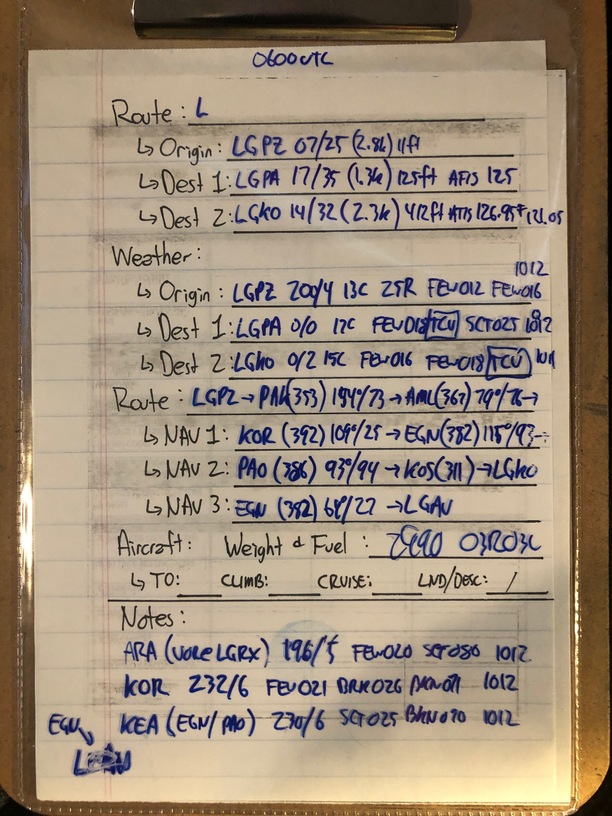 0600UTC
Route: L
↳ Origin: LGPZ 07/25 (2.8k) 11ft
↳ Dest 1: LGPA 17/35 (1.3k) 125ft AFIS 125
↳ Dest 2: LGKO 14/32 (2.3k) 412ft ATIS 126.95 + 121.05
Weather:
1012
↳ Origin: LGPZ 200/4 13C 25R FEW012 FEW016
↳ Dest 1: LGPA 0/0 12C FEW018 TCU SCT025 1012
↳ Dest 2: LGKO 0/2 15C FEW016 FEW018 TCU 1011
Route: LGPZ → PAK(353) 194°/73 → AML(367) 79°/76 →
↳ NAV 1: KOR (392) 109°/25 → EGN (382) 115°/93 →
↳ NAV 2: PAO (386) 93°/94 → KOS (311) → LGKO
↳ NAV 3: EGN (382) 68°/27 → LGAV
Aircraft: Weight & Fuel: 03R03L
↳ TO: CLIMB: CRUISE: LND/DESC: /
Notes:
ARA (LGRX) 196/5 FEW020 SCT080 1012
KOR 232/6 FEW021 BKN026 BKN071 1012
EGN KEA (EGN/PAO) 230/6 SCT025 BKN070 1012